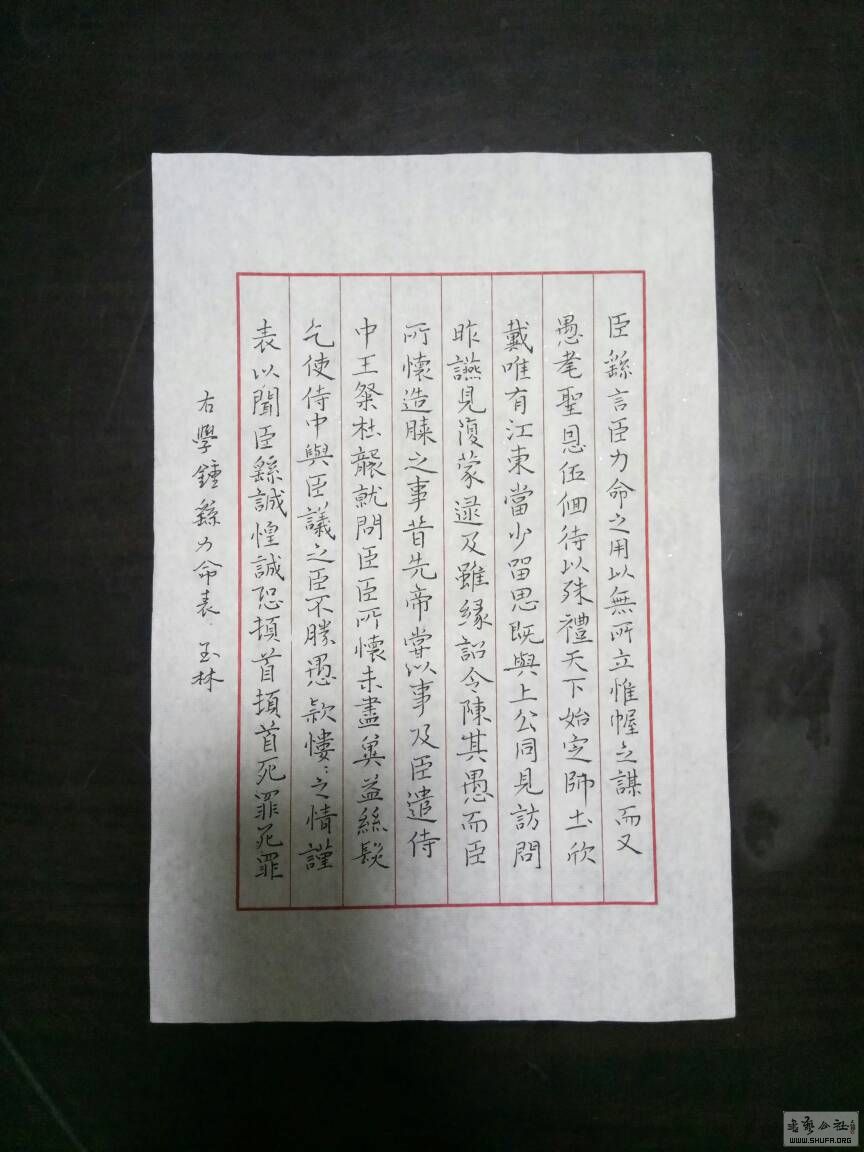 臣繇言臣力命之用以無所立惟幄之謀而又
愚耄聖恩伍佪待以殊禮天下始定師土欣
戴唯有江東當少留思既與上公同見訪問
昨讌見復蒙逮及雖緣詔令陳其愚而臣
所懷造膝之事昔先帝嘗以事及臣遣侍
中王粲杜襲就問臣臣所懷未盡冀益絲髮
乞使侍中與臣議之臣不勝愚款慺:之情謹
表以聞臣繇誠惶誠恐頓首頓首死罪死罪
右學鍾繇力命表 玉林
書藝公社
WWW.SHUFA.ORG